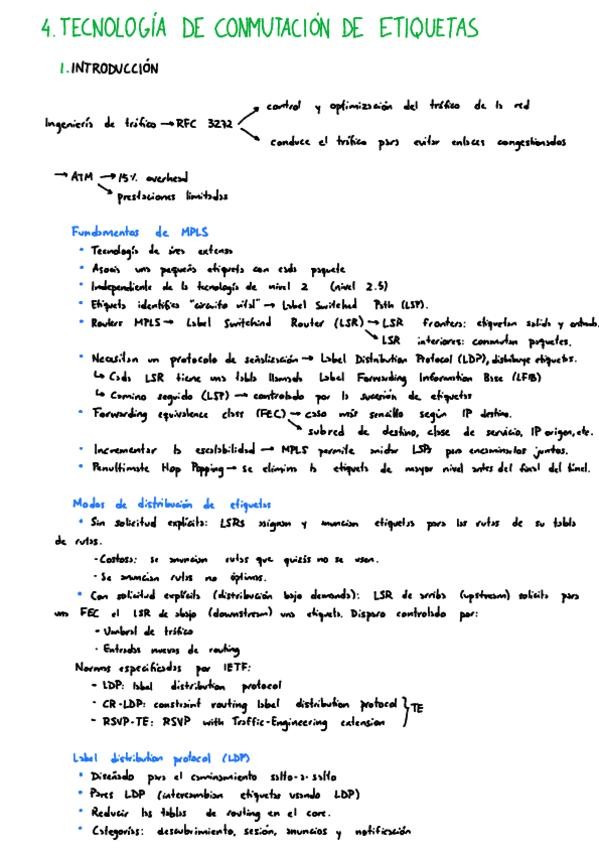 4. TECNOLOGÍA DE CONMUTACIÓN DE ETIQUETAS
1. INTRODUCCIÓN
control y optimización del tráfico de la red
Ingeniería de tráfico → RFC 3272
conduce el tráfico para evitar enlaces congestionados
→ ATM → 15% overhead
prestaciones limitadas
Fundamentos de MPLS
• Tecnología de área extensa
• Asocia una pequeña etiqueta con cada paquete
• Independiente de la tecnología de nivel 2 (nivel 2.5)
• Etiqueta identifica "circuito vital" → Label Switched Path (LSP).
• Routers MPLS → Label Switchind Router (LSR) → LSR frontera: etiquetan salida y entrada.
LSR interiores: conmutan paquetes.
• Necesitan un protocolo de señalización → Label Distribution Protocol (LDP), distribuye etiquetas.
↳ Cada LSR tiene una tabla llamada Label Forwarding Information Base (LFIB)
↳ Camino seguido (LSP) → controlado por la sucesión de etiquetas
• Forwarding equivalence class (FEC) → caso más sencillo según IP destino.
subred de destino, clase de servicio, IP origen, etc.
• Incrementar la escalabilidad → MPLS permite anidar LSPs para encaminarlos juntos.
• Penultimate Hop Popping → se elimina la etiqueta de mayor nivel antes del final del túnel.
Modos de distribución de etiquetas
• Sin solicitud explícita: LSRs asignan y anuncian etiquetas para las rutas de su tabla
de rutas.
- Costosa: se anuncian rutas que quizás no se usen.
- Se anuncian rutas no óptimas.
• Con solicitud explícita (distribución bajo demanda): LSR de arriba (upstream) solicita para
una FEC el LSR de abajo (downstream) una etiqueta. Disparo controlado por:
- Umbral de tráfico
- Entradas nuevas de routing
Normas especificadas por IETF:
- LDP: label distribution protocol
- CR-LDP: constraint routing label distribution protocol } TE
- RSVP-TE: RSVP with Traffic-Engineering extension
Label distribution protocol (LDP)
• Diseñado para el caminamiento salto-a-salto
• Pares LDP (intercambian etiquetas usando LDP)
• Reducir las tablas de routing en el core.
• Categorías: descubrimiento, sesión, anuncios y notificación